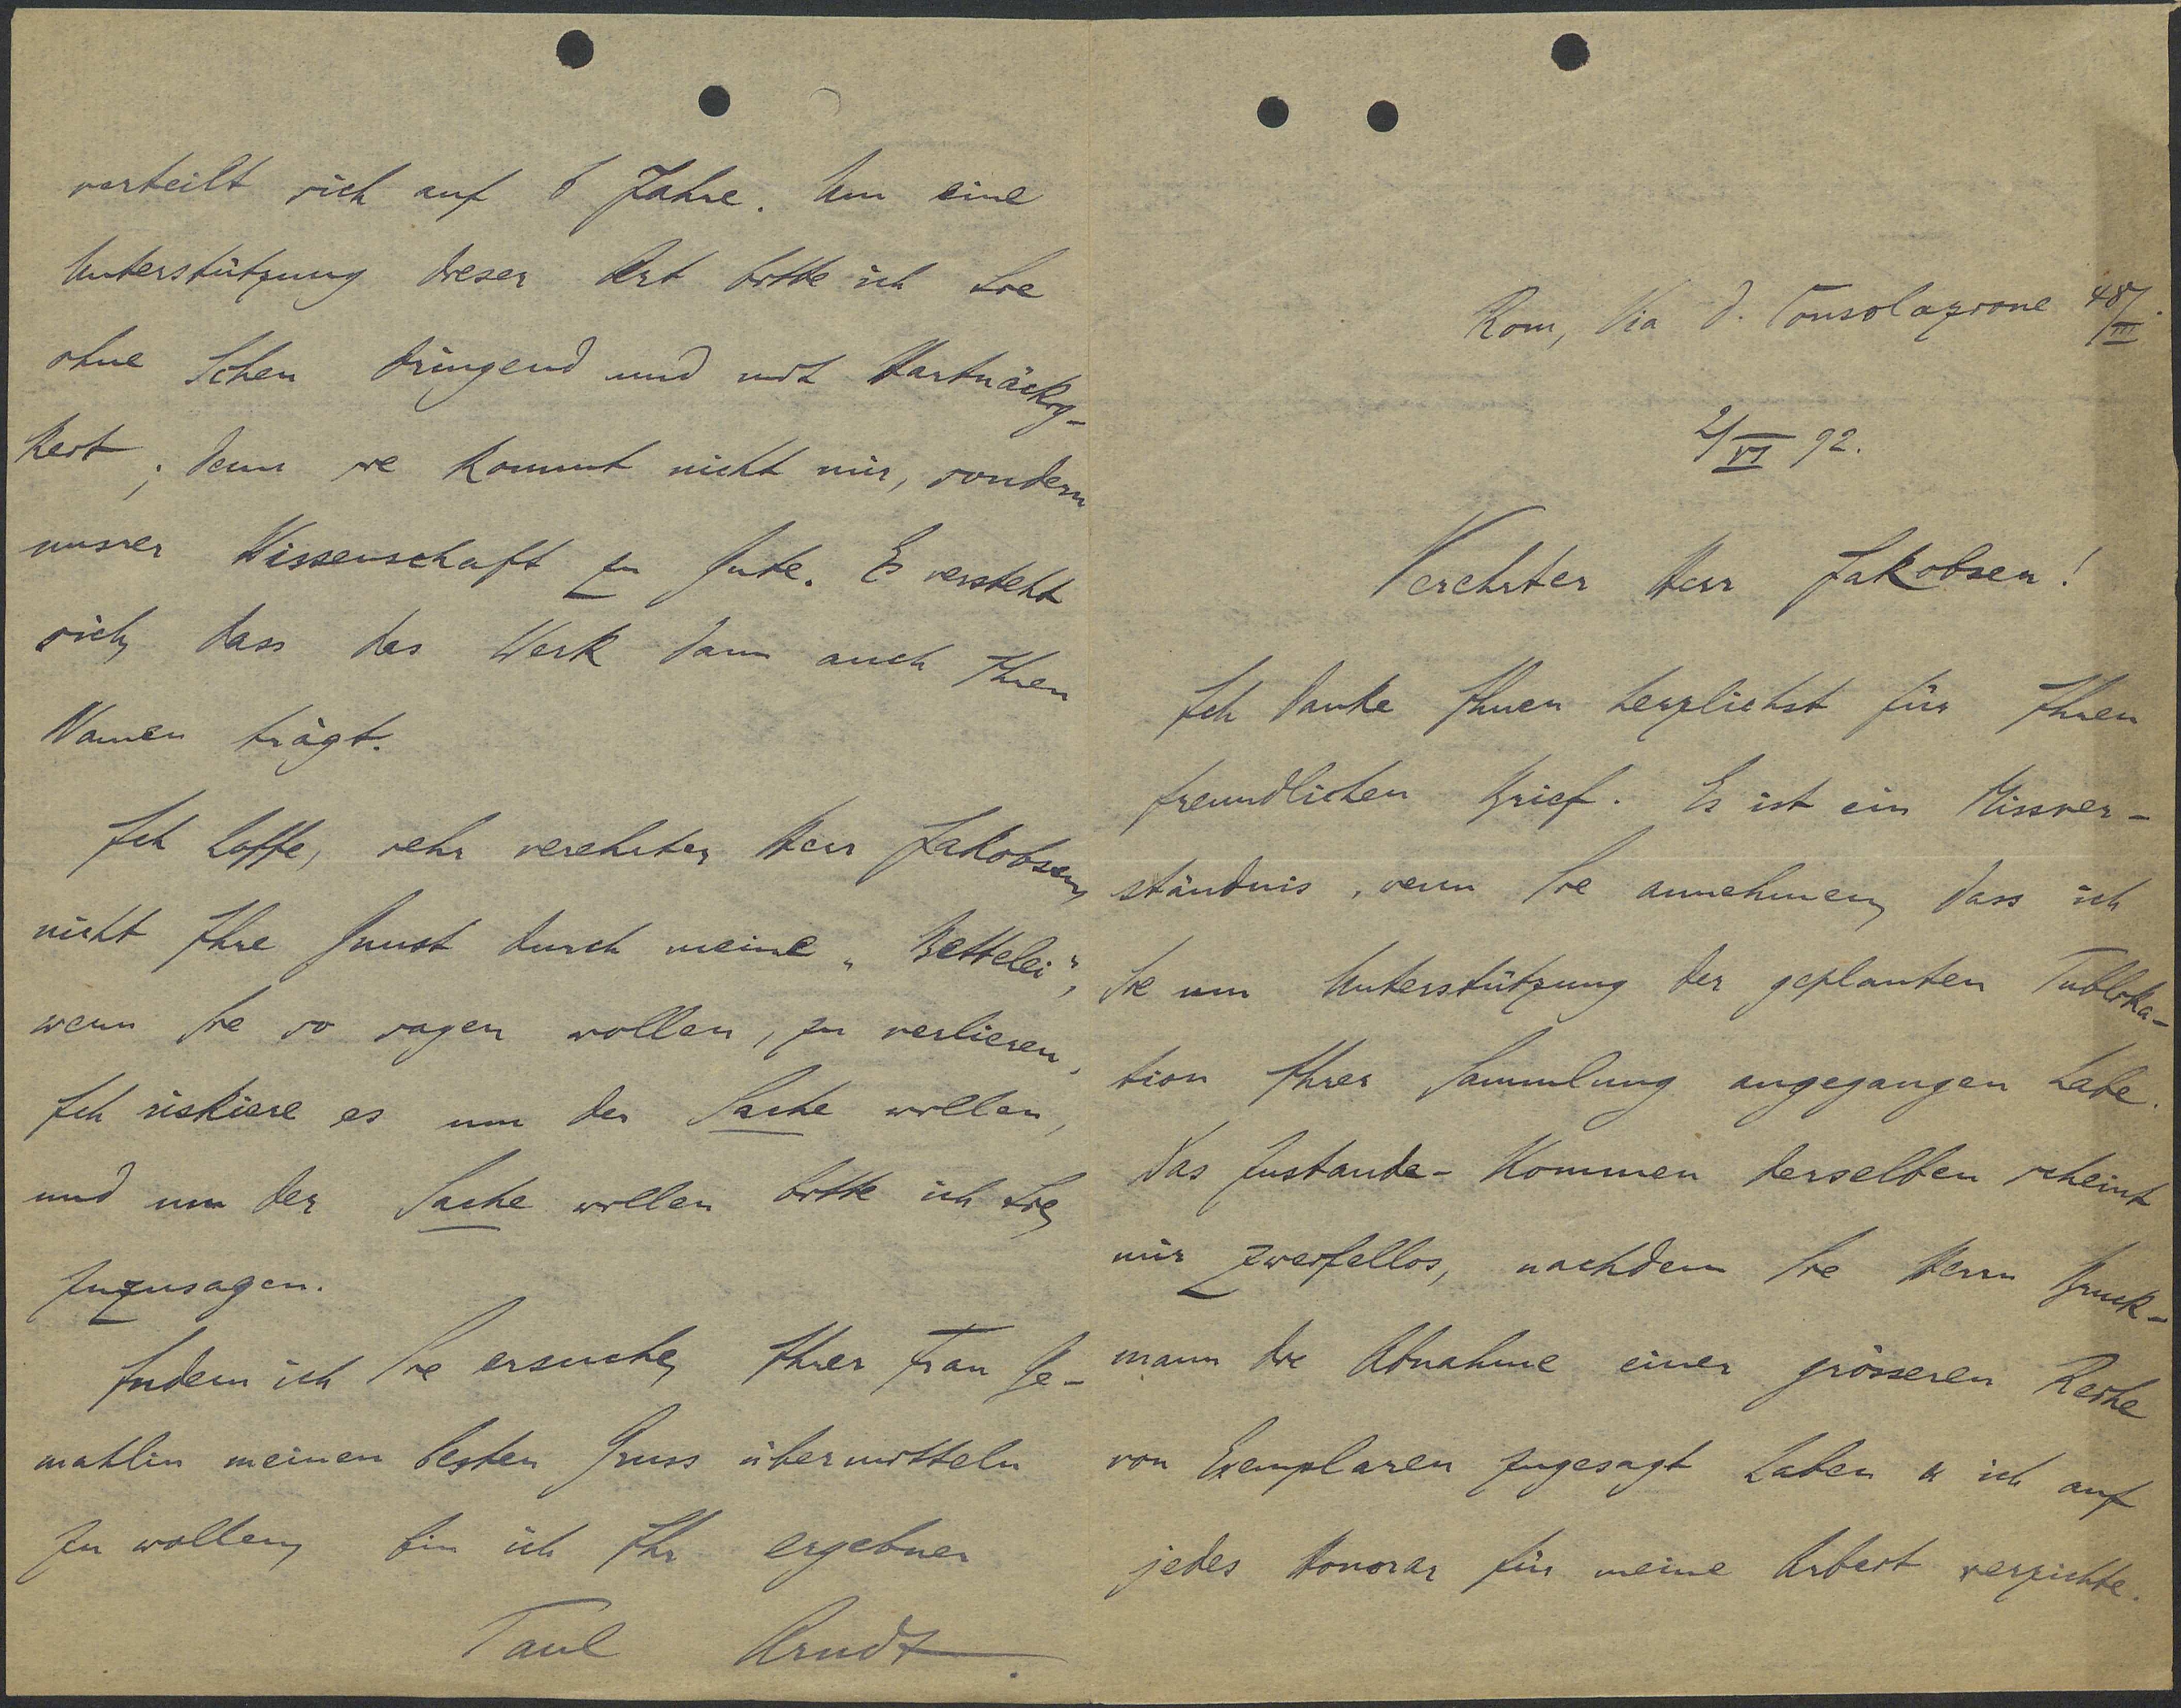 Rom, Via d. Consolazione 48/III.
2/VI 92.
Verehrter Herr Jakobsen!
Ich danke Ihnen herzlichst für Ihren
freundlichen Brief. Es ist ein Missver-
ständnis, wenn Sie annehmen, dass ich
Sie um Unterstützung der geplanten Publika-
tion Ihrer Sammlung angegangen habe.
Das Zustande-Kommen derselben scheint
mir zweifellos, nachdem Sie Herrn Bruck-
mann die Abnahme einer grösseren Reihe
von Exemplaren zugesagt haben u ich auf
jedes Honorar für meine Arbeit verzichte.
verteilt sich auf 6 Jahre. Um eine
Unterstützung dieser Art bitte ich Sie
ohne Scheu dringend und mit Hartnäckig-
keit; denn sie kommt nicht mir, sondern
unsrer Wissenschaft zu Gute. Es versteht
sich, dass das Werk dann auch Ihren
Namen trägt.
Ich hoffe, sehr verehrter Herr Jakobsen,
nicht Ihre Gunst durch meine „Bettelei“,
wenn Sie so sagen wollen, zu verlieren.
Ich riskiere es um der Sache willen,
und um der Sache willen bitte ich Sie,
zuzusagen.
Indem ich Sie ersuche, Ihrer Frau Ge-
mahlin meinen besten Gruss übermitteln
zu wollen, bin ich Ihr ergebner
Paul Arndt.